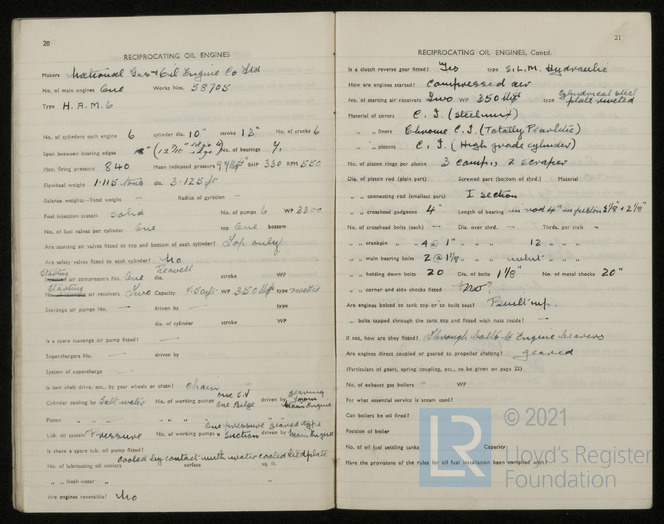 20
RECIPROCATING OIL ENGINES
Makers National Gas & Oil Engine Co Ltd
No. of main engines One Works Nos. 58705
Type H.A.M.6
No. of cylinders each engine 6 cylinder dia. 10" stroke 13" No. of cranks 6
Span between bearing edges No. of bearings 7.
Max. firing pressure 840 Mean indicated pressure BHP 330 RPM 550
Flywheel weight 1.115 tons 3.125
Balance weights—Total weight — Radius of gyration —
Fuel injection system Solid No. of pumps 6 WP 3300
No. of fuel valves per cylinder One top One bottom
Are starting air valves fitted to top and bottom of each cylinder? Top only
Are safety valves fitted to each cylinder? No
Starting air compressors No. One dia. stroke WP
Starting air receivers Two Capacity WP 350 type riveted
Scavenge air pump No. — driven by — type
dia. of cylinder stroke WP
Is a spare scavenge air pump fitted? —
Superchargers No. — driven by
System of supercharge —
Is cam shaft drive, etc., by gear wheels or chain? Chain
Cylinder cooling by Salt water No. of working pumps One S.W. One Bilge driven by gearing from Main Engine
Piston
Lub. oil system Pressure No. of working pumps One Pressure geared type Suction driven by Main Engine
Is there a spare lub. oil pump fitted?
No. of lubricating oil coolers cooled by contact with water cooled bedplate surface sq. ft.
" " fresh water "
Are engines reversible? No
21
RECIPROCATING OIL ENGINES, Contd.
Is a clutch reverse gear fitted? Yes type S.L.M. Hydraulic
How are engines started? Compressed air
No. of starting air receivers Two WP 350 type Cylindrical steel plate riveted
Material of covers C.I. (Steelmet)
" " liners Chrome C.I. (Totally Pearlitic)
" " pistons C.I. (High grade cylinder)
No. of piston rings per piston 3 comp., 2 scraper
Dia. of piston rod (plain part) Screwed part (bottom of thrd.) Material
" " connecting rod (smallest part) I section
" " crosshead gudgeons 4" Length of bearing in rod 4" in piston 2⅛" + 2⅛"
No. of crosshead bolts (each) — Dia. over thrd. — Thrds. per inch "
" crankpin " " 4 @ 1" " " 12 " "
" main bearing bolts 2 @ 1⅛ " " whit " "
" holding down bolts 20 Dia. of bolts 1⅛" No. of metal chocks 20"
" " corner and side chocks fitted No.
Are engines bolted to tank top or to built seat?
" bolts tapped through the tank top and fitted with nuts inside? —
If not, how are they fitted? Through bolts to Engine bearers
Are engines direct coupled or geared to propeller shafting? geared
(Particulars of gears, spring coupling, etc., to be given on page 22)
No. of exhaust gas boilers — WP
For what essential service is steam used?
Can boilers be oil fired?
Position of boiler
No. of oil fuel settling tanks Capacity
Have the provisions of the rules for oil fuel installation been complied with?
© 2021
LR
Lloyd's Register
Foundation